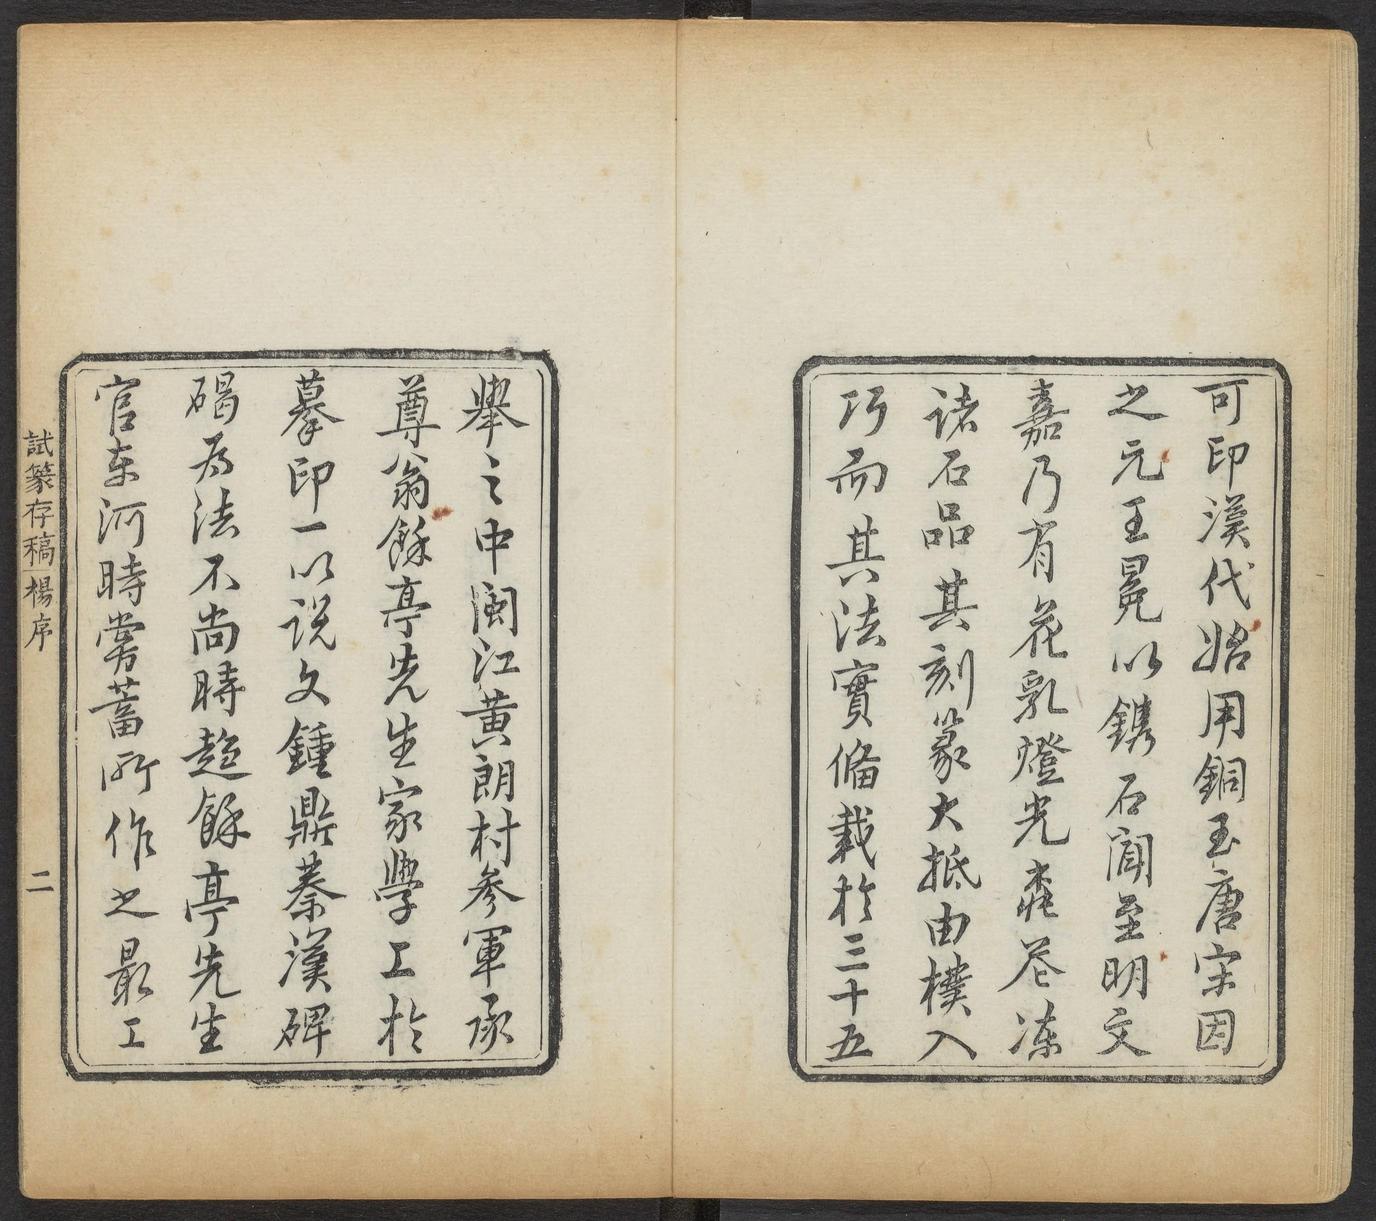 可印漢代始用銅玉唐宋因
之元王冕以鐫石聞至明文
嘉乃有花乳燈光桃花凍
諸石品其刻篆大抵由樸入
巧而其法實備載於三十五
舉之中閩江黃朗村參軍承
尊翁餘亭先生家學工於
摹印一以説文鍾鼎秦漢碑
碣为法不尚時趨餘亭先生
官东河時嘗蓄所作之最工
試篆存稿 楊序
二